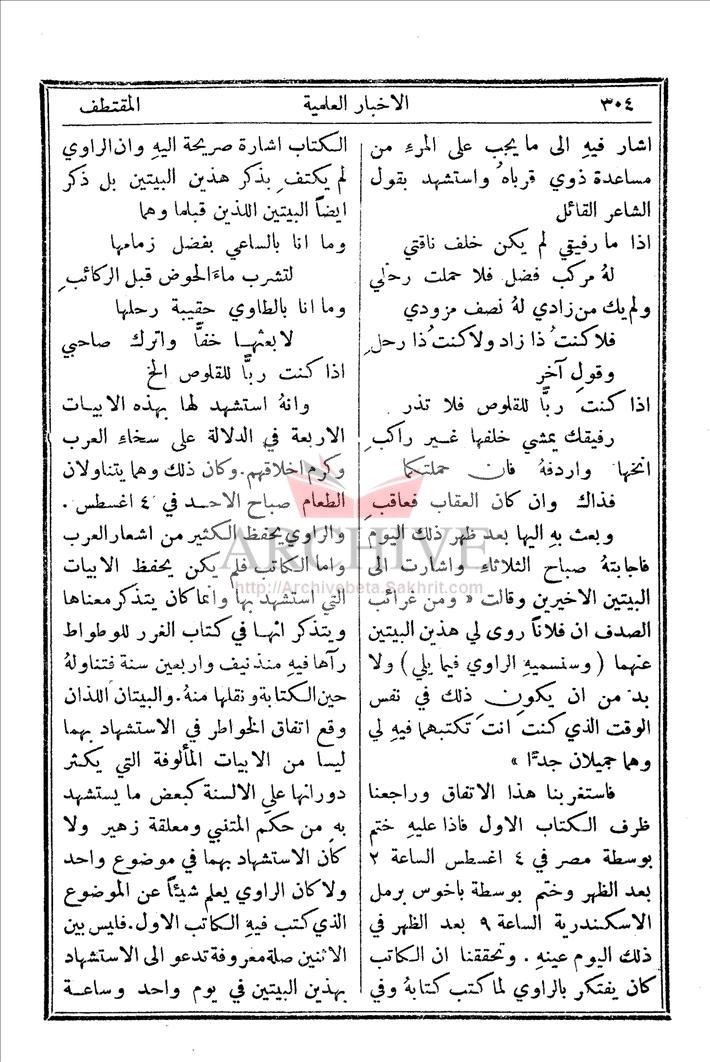 ٣٠٤ الاخبار العلمية المقتطف
اشار فيهِ الى ما يجب على المرءِ من
مساعدة ذوي قرباهُ واستشهد بقول
الشاعر القائل
اذا ما رفيقي لم يكن خلف ناقتي
لهُ مركب فضل فلا حملت رحلي
ولم يك من زادي لهُ نصف مزودي
فلا كنتُ ذا زاد ولا كنتُ ذا رحلِ
وقولِ آخرِ
اذا كنتَ ربًّا للقلوص فلا تذر
رفيقك يمشي خلفها غير راكبِ
انخها واردفهُ فان حملتكما
فذاك وان كان العقاب فعاقبِ
وبعث بهِ اليها بعد ظهر ذلك اليوم
فاجابتهُ صباح الثلاثاء واشارت الى
البيتين الاخيرين وقالت « ومن غرائب
الصدف ان فلاناً روى لي هذين البيتين
عنهما ( وسنسميهِ الراوي فيما يلي ) ولا
بدّ من ان يكون ذلك في نفس
الوقت الذي كنتَ انتَ تكتبهما فيهِ لي
وهما جميلان جدًّا »
فاستغربنا هذا الاتفاق وراجعنا
ظرف الكتاب الاول فاذا عليهِ ختم
بوسطة مصر في ٤ اغسطس الساعة ٢
بعد الظهر وختم بوسطة باخوس برمل
الاسكندرية الساعة ٩ بعد الظهر في
ذلك اليوم عينهِ . وتحققنا ان الكاتب
كان يفتكر بالراوي لما كتب كتابهُ وفي
الكتاب اشارة صريحة اليهِ وان الراوي
لم يكتفِ بذكر هذين البيتين بل ذكر
ايضاً البيتين اللذين قبلهما وهما
وما انا بالساعي بفضل زمامها
لتشرب ماءَ الحوض قبل الركائبِ
وما انا بالطاوي حقيبة رحلها
لابعثها خفًّا واترك صاحبي
اذا كنت ربًّا للقلوص الخ
وانهُ استشهد لها بهذه الابيات
الاربعة في الدلالة على سخاءِ العرب
وكرم اخلاقهم. وكان ذلك وهما يتناولان
الطعام صباح الاحد في ٤ اغسطس .
والراوي يحفظ الكثير من اشعار العرب
واما الكاتب فلم يكن يحفظ الابيات
التي استشهد بها وانما كان يتذكر معناها
ويتذكر انها في كتاب الغرر للوطواط
رآها فيهِ منذ نيف واربعين سنة فتناولهُ
حين الكتابة ونقلها منهُ. والبيتان اللذان
وقع اتفاق الخواطر في الاستشهاد بهما
ليسا من الابيات المألوفة التي يكثر
دورانها على الالسنة كبعض ما يستشهد
بهِ من حكم المتنبي ومعلقة زهير ولا
كان الاستشهاد بهما في موضوع واحد
ولا كان الراوي يعلم شيئاً عن الموضوع
الذي كتب فيهِ الكاتب الاول. فليس بين
الاثنين صلة معروفة تدعو الى الاستشهاد
بهذين البيتين في يوم واحد وساعة
ARCHIVE
http://Archivebeta.Sakhrit.com